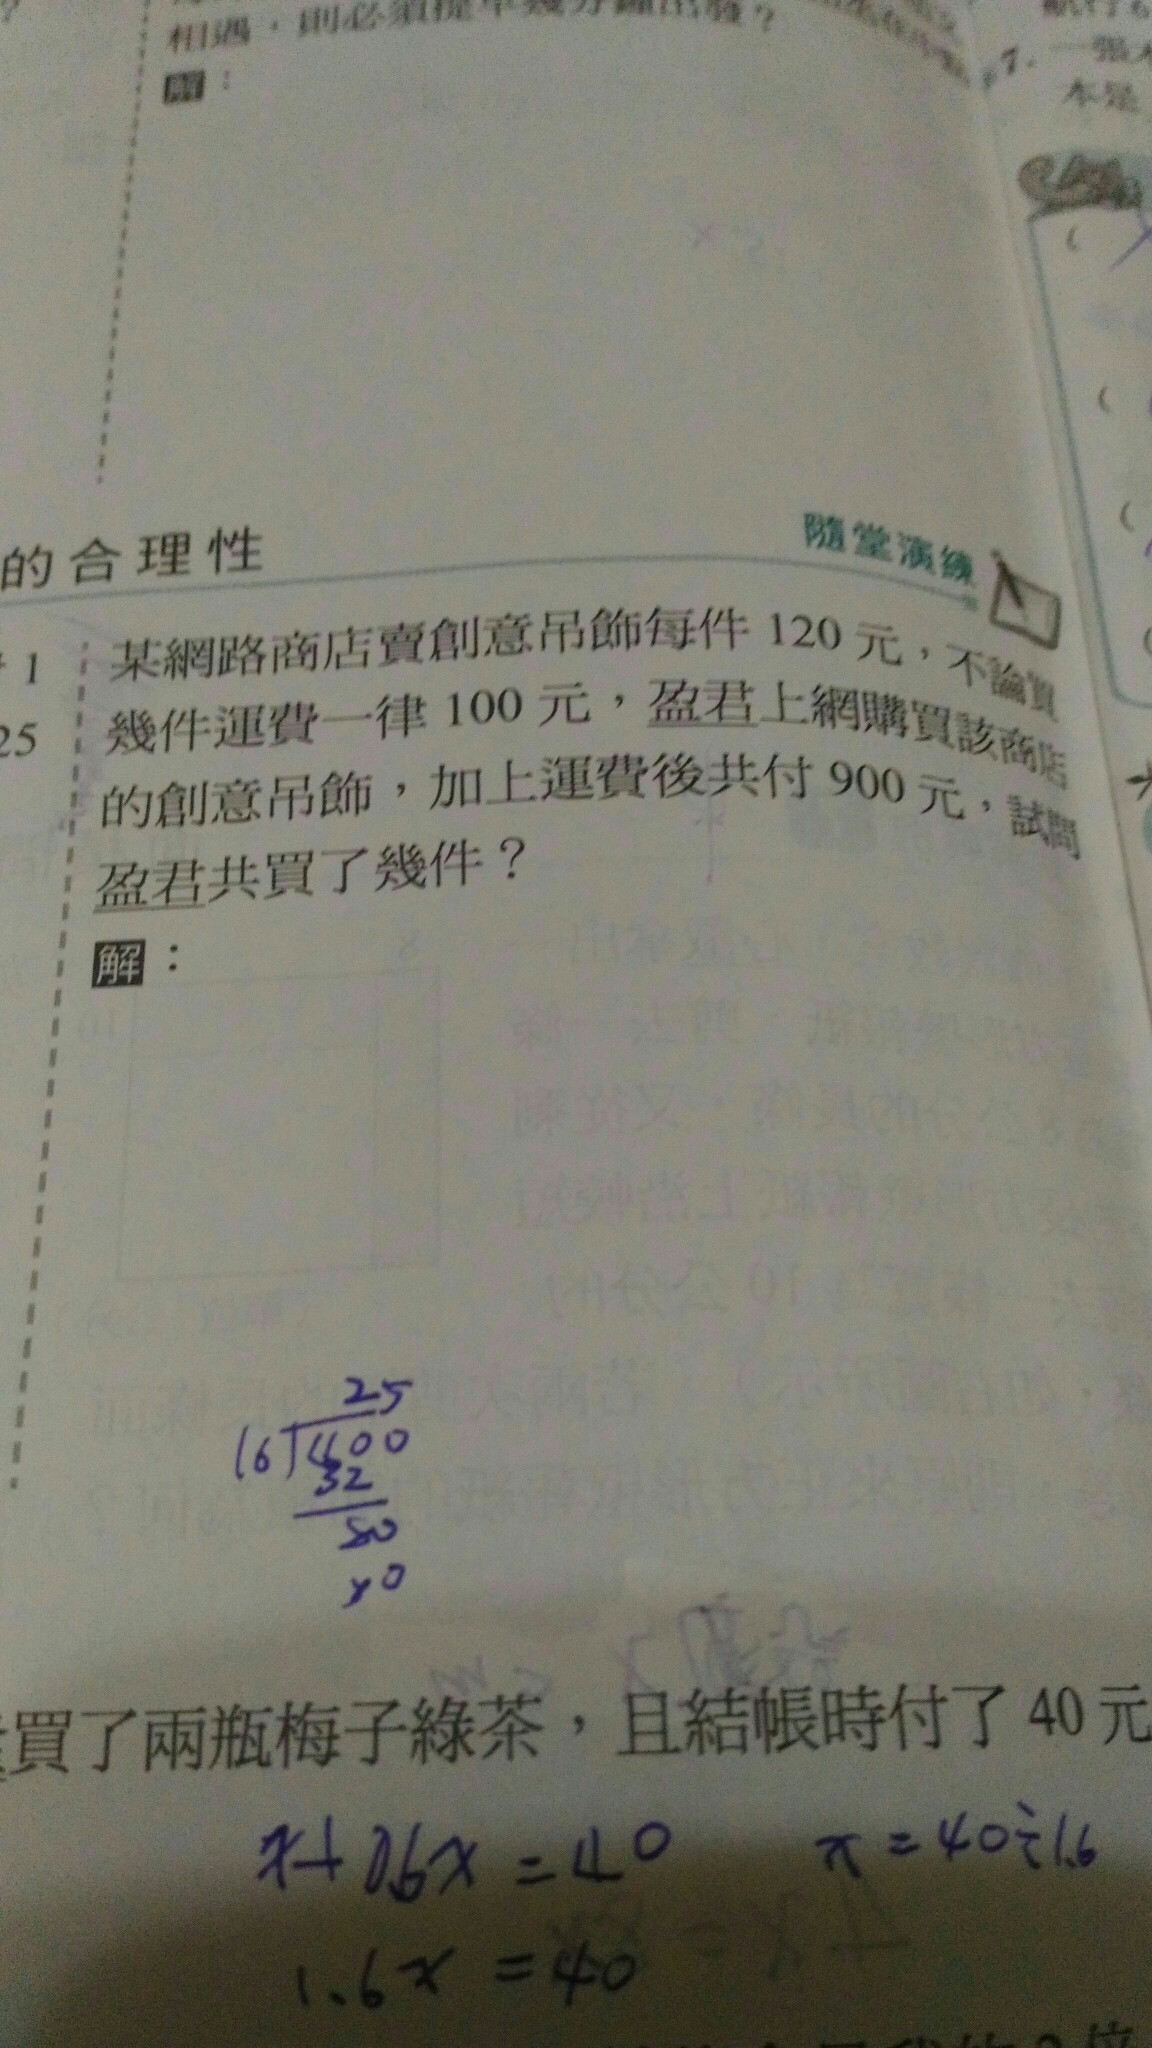 相遇，則必須提早幾分鐘出發？
解：
7.
一張
本是
的合理性
隨堂演練
1
25
某網路商店賣創意吊飾每件 120 元，不論買
幾件運費一律 100 元，盈君上網購買該商店
的創意吊飾，加上運費後共付 900 元，試問
盈君共買了幾件？
解：
25
16 400
32
80
買了兩瓶梅子綠茶，且結帳時付了 40 元
x+0.6x=40
x=40÷1.6
1.6x=40